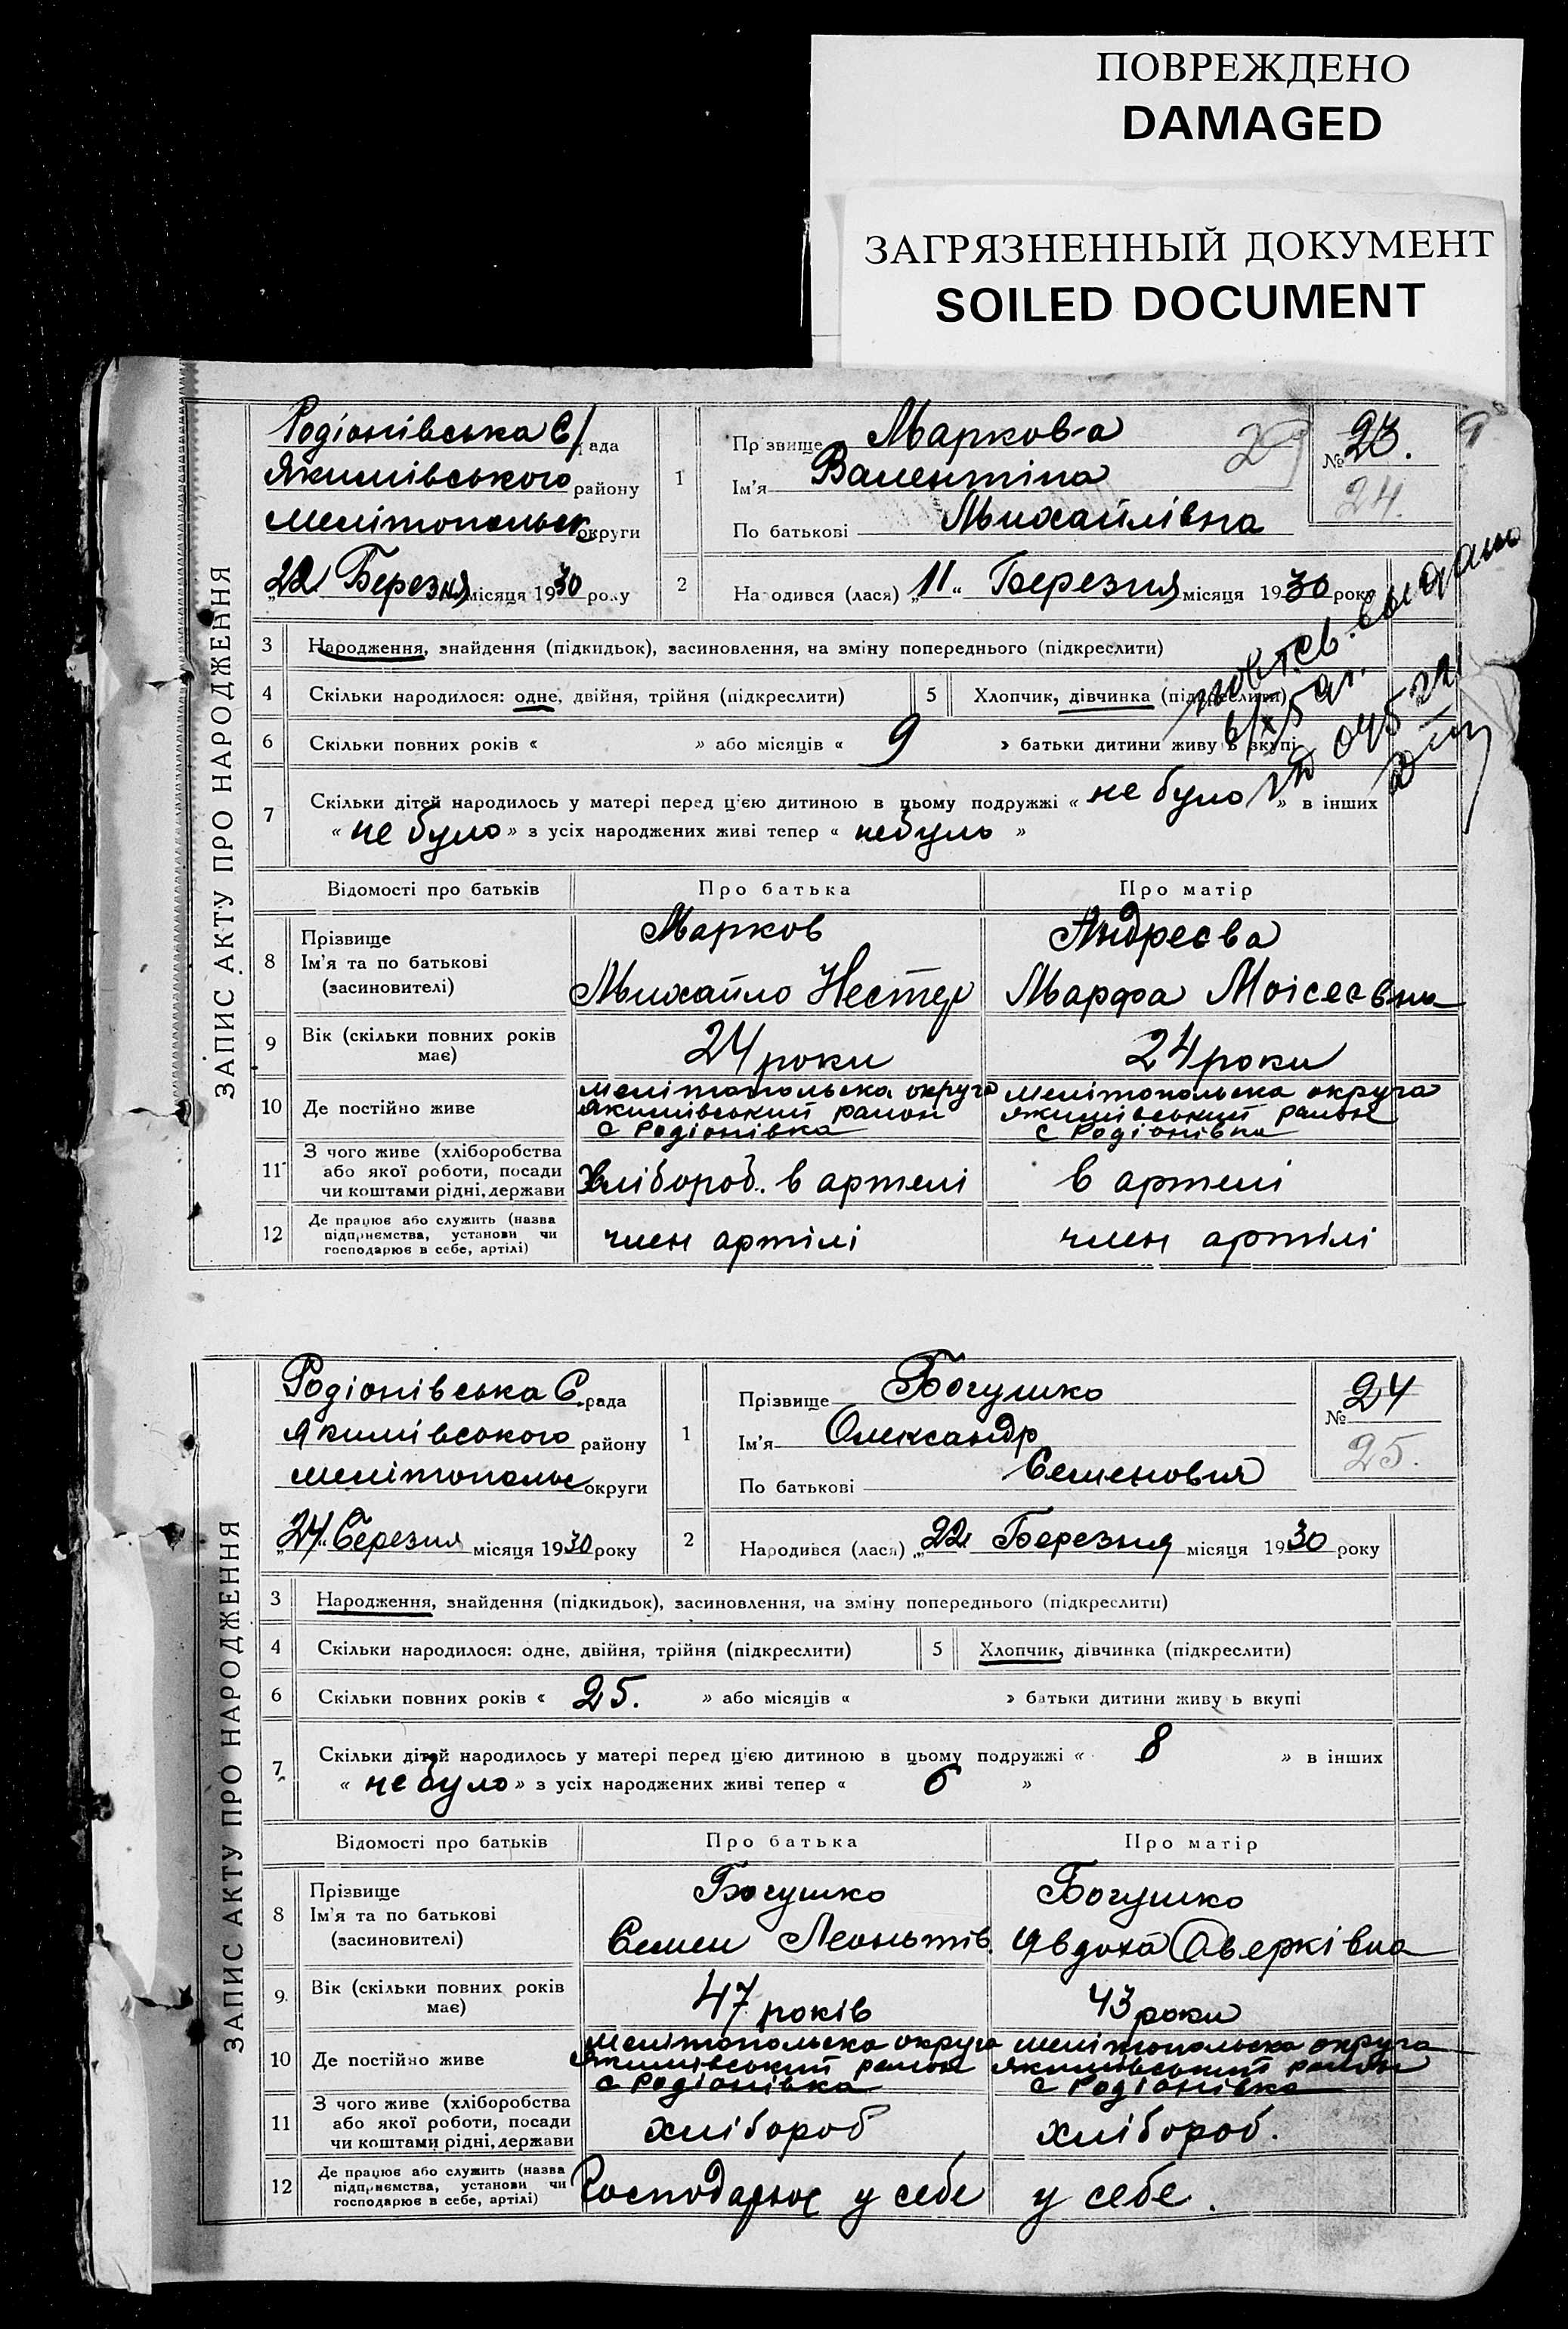 ПОВРЕЖДЕНО
DAMAGED
ЗАГРЯЗНЕННЫЙ ДОКУМЕНТ
SOILED DOCUMENT
ЗАПИС АКТУ ПРО НАРОДЖЕННЯ
Родіонівська С/рада
Якимівського району
Мелітопольск округи
„22 Березня місяця 1930 року
1 Прізвище Маркова
29
Ім'я Валентіна
По батькові Михайлівна
№ 23.
24.
2 Народився (лася) „11“ Березня місяця 1930 року
3 Народження, знайдення (підкидьок), засиновлення, на зміну попереднього (підкреслити)
4 Скільки народилося: одне, двійня, трійня (підкреслити) 5 Хлопчик, дівчинка (підкреслити)
6 Скільки повних років « » або місяців « 9 » батьки дитини живуть вкупі
7 Скільки дітей народилось у матері перед цією дитиною в цьому подружжі « не було » в інших
« не було » з усіх народжених живі тепер « небуло »
Відомості про батьків Про батька Про матір
8 Прізвище
Ім'я та по батькові
(засиновителі)
Марков
Михайло Нестер
Андреєва
Марфа Моісеєвна
9 Вік (скільки повних років має) 24 роки 24 роки
10 Де постійно живе
мелітопольска округа
якимівський район
с Родіонівка
мелітопольска округа
якимівський район
с Родіонівка
11 З чого живе (хліборобства
або якої роботи, посади
чи коштами рідні, держави
Хлібороб. в артелі
в артелі
12 Де працює або служить (назва
підприємства, установи чи
господарює в себе, артілі)
член артілі
член артілі
ЗАПИС АКТУ ПРО НАРОДЖЕННЯ
Родіонівська С. рада
Якимівського району
мелітопольс округи
„24“ Березня місяця 1930 року
1 Прізвище Богушко
Ім'я Олександр
По батькові Семеновия
№ 24
25.
2 Народився (лася) „22 Березня місяця 1930 року
3 Народження, знайдення (підкидьок), засиновлення, на зміну попереднього (підкреслити)
4 Скільки народилося: одне, двійня, трійня (підкреслити) 5 Хлопчик, дівчинка (підкреслити)
6 Скільки повних років « 25. » або місяців « » батьки дитини живу ь вкупі
7 Скільки дітей народилось у матері перед цією дитиною в цьому подружжі « 8 » в інших
« не було » з усіх народжених живі тепер « 6 »
Відомості про батьків Про батька Про матір
8 Прізвище
Ім'я та по батькові
(засиновителі)
Богушко
Семен Леоньтів.
Богушко
Явдоха Оверківна
9. Вік (скільки повних років має) 47 років 43 роки
10 Де постійно живе
мелітопольска округа
якимівський район
с Родіонівка
мелітопольска округа
якимівський район
с Родіонівка
11 З чого живе (хліборобства
або якої роботи, посади
чи коштами рідні, держави
хлібороб
хлібороб.
12 Де працює або служить (назва
підприємства, установи чи
господарює в себе, артілі)
Господарює у себе
у себе.